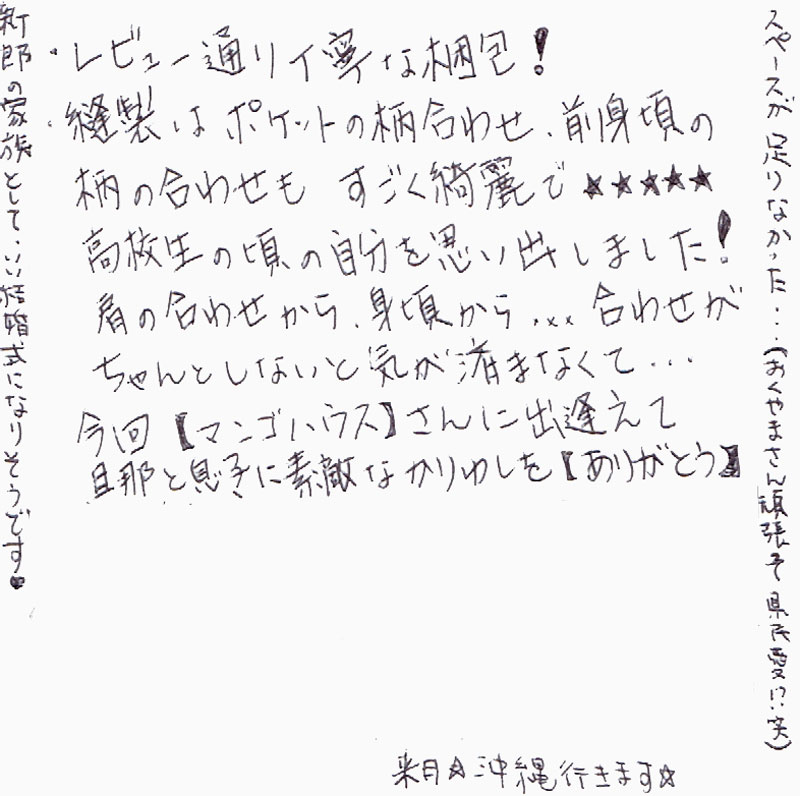 ・レビュー通り丁寧な梱包!
・縫製はポケットの柄合わせ、前身頃の
柄の合わせも すごく綺麗で★★★★★
高校生の頃の自分を思い出しました!
肩の合わせから、身頃から... 合わせが
ちゃんとしないと気が済まなくて...
今回【マンゴハウス】さんに出逢えて
旦那と息子に素敵なかりゆしを【ありがとう】
スペースが足りなかった...(おくやまさん頑張そ県民愛!?笑)
新郎の家族として、いい結婚式になりそうです♥
来月☆沖縄行きます☆